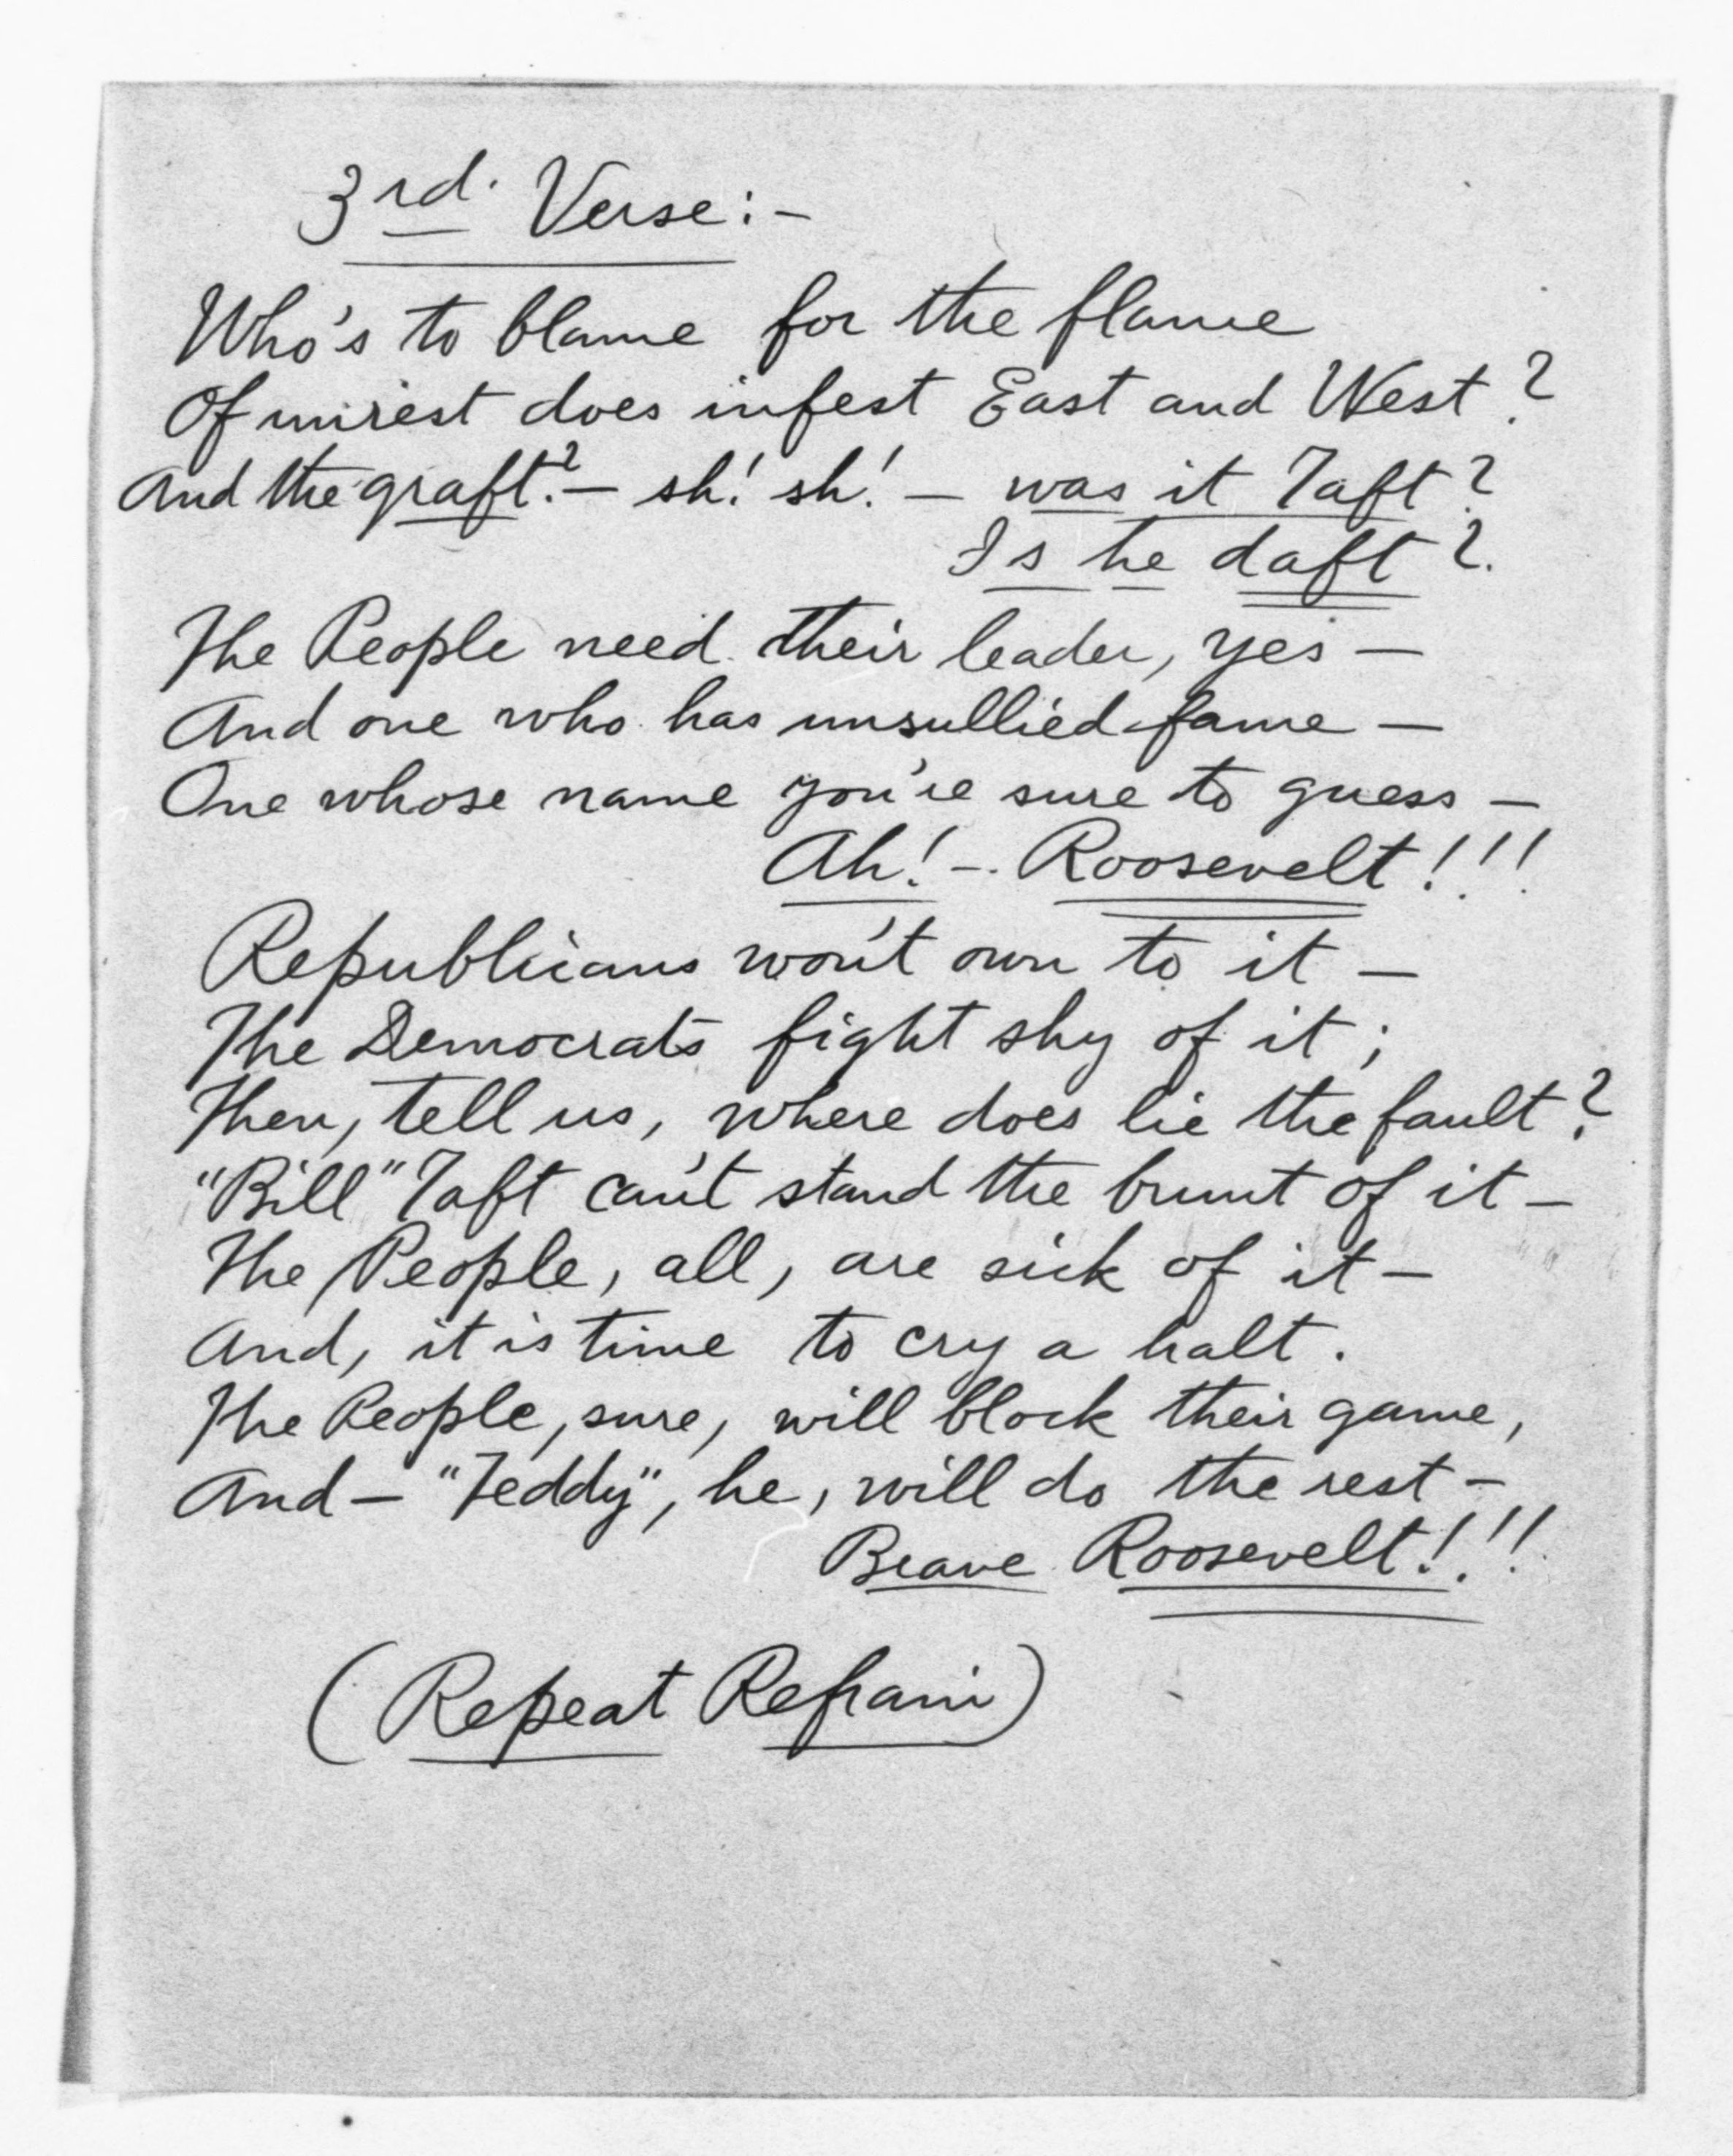 3rd. Verse:-
Who's to blame for the flame
Of unrest does infest East and West?
And the graft?- sh! sh! - was it Taft?
Is he daft?
The People need their leader, yes -
And one who has unsullied fame -
One whose name you're sure to guess -
Ah! - Roosevelt!!!
Republicans won't own to it -
The Democrats fight shy of it;
Then, tell us, where does lie the fault?
"Bill" Taft can't stand the brunt of it -
The People, all, are sick of it -
And, it is time to cry a halt.
The People, sure, will block their game,
And - "Teddy", he, will do the rest -
Brave Roosevelt!!!
(Repeat Refrain)